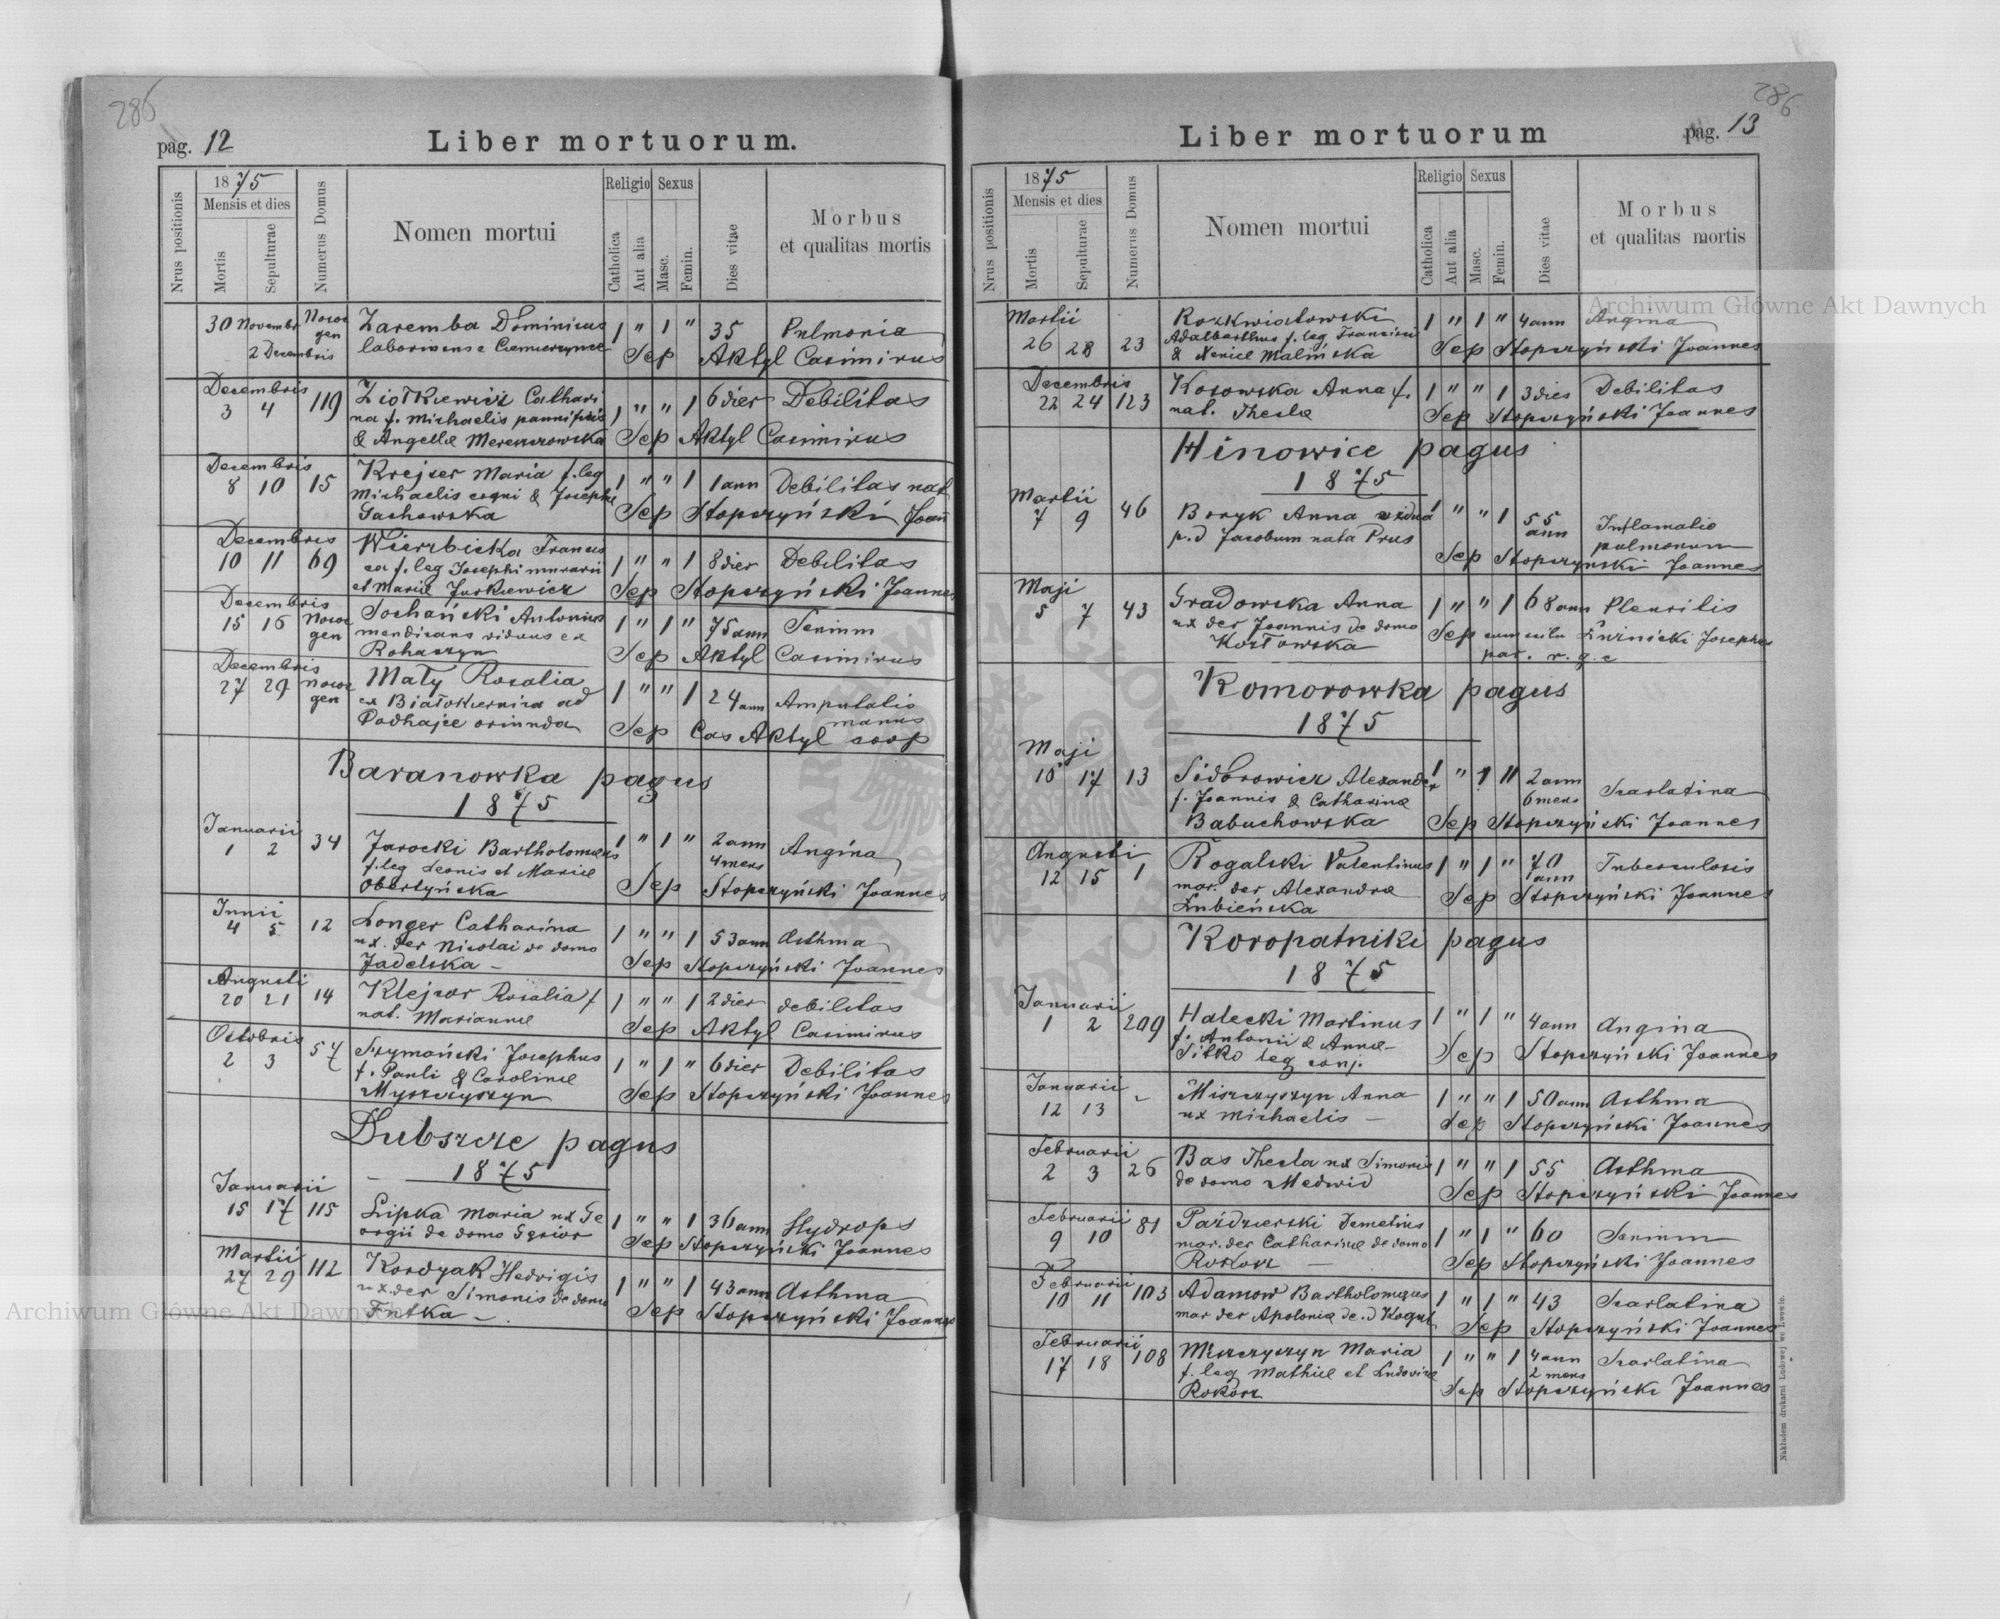 285
pag. 12
Liber mortuorum.
Nrus positionis
1875
Mensis et dies
Mortis
Sepulturae
Numerus Domus
Nomen mortui
Religio
Catholica
Aut alia
Sexus
Masc.
Femin.
Dies vitae
Morbus
et qualitas mortis
30 Novembr Nowo Zaremba Dominicus 1 " 1 " 35 Pulmonia
gen
2 Decembris
Sep Aktyl Casimirus
Decembris
3 4 119 Ziołkiewicz Cathari
na f. Michaelis pannificis 1 " " 1 6 dier Debilitas
& Angelæ Mereszrowska Sep Aktyl Casimirus
Decembris
8 10 15 Krejser Maria f. leg 1 " " 1 1 ann Debilitas nat
Michaelis coqui & Josephæ
Gachowska Sep Stopczyński Joan̄
Decembris
10 11 69 Wierzbicka Francis
ca f. leg Josephi murarii 1 " " 1 8 dier Debilitas
et Mariæ Jurkiewicz Sep Stopczyński Joannes
Decembris
15 16 Nowo Sochański Antonius 1 " 1 " 75 ann Senium
gen mendicans viduus ex
Rohaczyn Sep Aktyl Casimirus
Decembris
27 29 Nowo Mały Rosalia 1 " " 1 24 ann Amputatio
gen ex Białokiernica ad manus
Podhajce oriunda Sep Cas Aktyl coop
Baranowka pagus
1875
Januarii
1 2 34 Jarocki Bartholomeus 1 " 1 " 2 ann Angina
f. leg Leonis et Mariæ 4 mens
Obertyńska Sep Stopczyński Joannes
Junii
4 5 12 Longer Catharina 1 " " 1 53 ann Asthma
ux. der Nicolai de domo
Jadelska – Sep Stopczyński Joannes
Augusti
20 21 14 Klejzor Rosalia f 1 " " 1 2 dier debilitas
nat. Mariannæ Sep Aktyl Casimirus
Octobris
2 3 57 Szymański Josephus 1 " 1 " 6 dier Debilitas
f. Pauli & Carolinæ
Myszczyszyn Sep Stopczyński Joannes
Dubszcze pagus
1875
Januarii
15 17 115 Lipka Maria ux Ge 1 " " 1 36 ann Hydrops
orgii de domo Sep Stopczyński Joannes
Martii
27 29 112 Kordyak Hedvigis 1 " " 1 43 ann Asthma
ux. der Simonis de domo
Futka – Sep Stopczyński Joannes
286
Liber mortuorum
pag. 13
Nrus positionis
1875
Mensis et dies
Mortis
Sepulturae
Numerus Domus
Nomen mortui
Religio
Catholica
Aut alia
Sexus
Masc.
Femin.
Dies vitae
Morbus
et qualitas mortis
Martii Rozkwiatowski 1 " 1 " 4 ann Angina
26 28 23 Adalbertus f. leg. Francisci
& Xeniæ Malinska Sep Stopczyński Joannes
Decembris
22 24 123 Kosowska Anna f. 1 " " 1 3 dies Debilitas
nat. Theclæ Sep Stopczyński Joannes
Hinowice pagus
1875
Martii
7 9 46 Boryk Anna vidua 1 " " 1 55 Inflamatio
p. d Jacobum nata Prus ann pulmonum
Sep Stopczynski Joannes
Maji
5 7 43 Gradowska Anna 1 " " 1 68 ann Pleuritis
ux der Joannis de domo
Kozłowska Sep Josephus
par. r. g. c
Komorowka pagus
1875
Maji
15 17 13 Sidorowicz Alexander 1 " 1 " 2 ann Scarlatina
f. Joannis & Catharinæ 6 mens
Babuchowska Sep Stopczyński Joannes
Augusti
12 15 1 Rogalski Valentinus 1 " 1 " 70 Tuberculosis
mar. der Alexandræ ann
Łubieńska Sep Stopczyński Joannes
Koropatniki pagus
1875
Januarii
1 2 209 Halecki Martinus 1 " 1 " 4 ann Angina
f. Antonii & Annæ
Sitko leg conj. Sep Stopczyński Joannes
Januarii
12 13 – Miszczyszyn Anna 1 " " 1 50 ann Asthma
ux Michaelis – Sep Stopczyński Joannes
Februarii
2 3 26 Bas Thecla ux Simonis 1 " " 1 55 Asthma
de domo Medwid Sep Stopczyński Joannes
Februarii
9 10 81 Paździerski Demetrius 1 " 1 " 60 Senium
mar. der Catharinæ de domo
Rokosz – Sep Stopczyński Joannes
Februarii
10 11 103 Adamow Bartholomeus 1 " 1 " 43 Scarlatina
mar der Apoloniæ de. d Kogut Sep Stopczyński Joannes
Februarii
17 18 108 Miszczyszyn Maria 1 " " 1 4 ann Scarlatina
f. leg Mathiæ et Ludovicæ 2 mens
Rokosz Sep Stopczyński Joannes
Nakładem drukarni Ludowej we Lwowie.
Archiwum Główne Akt Dawnych
Archiwum Główne Akt Dawnych